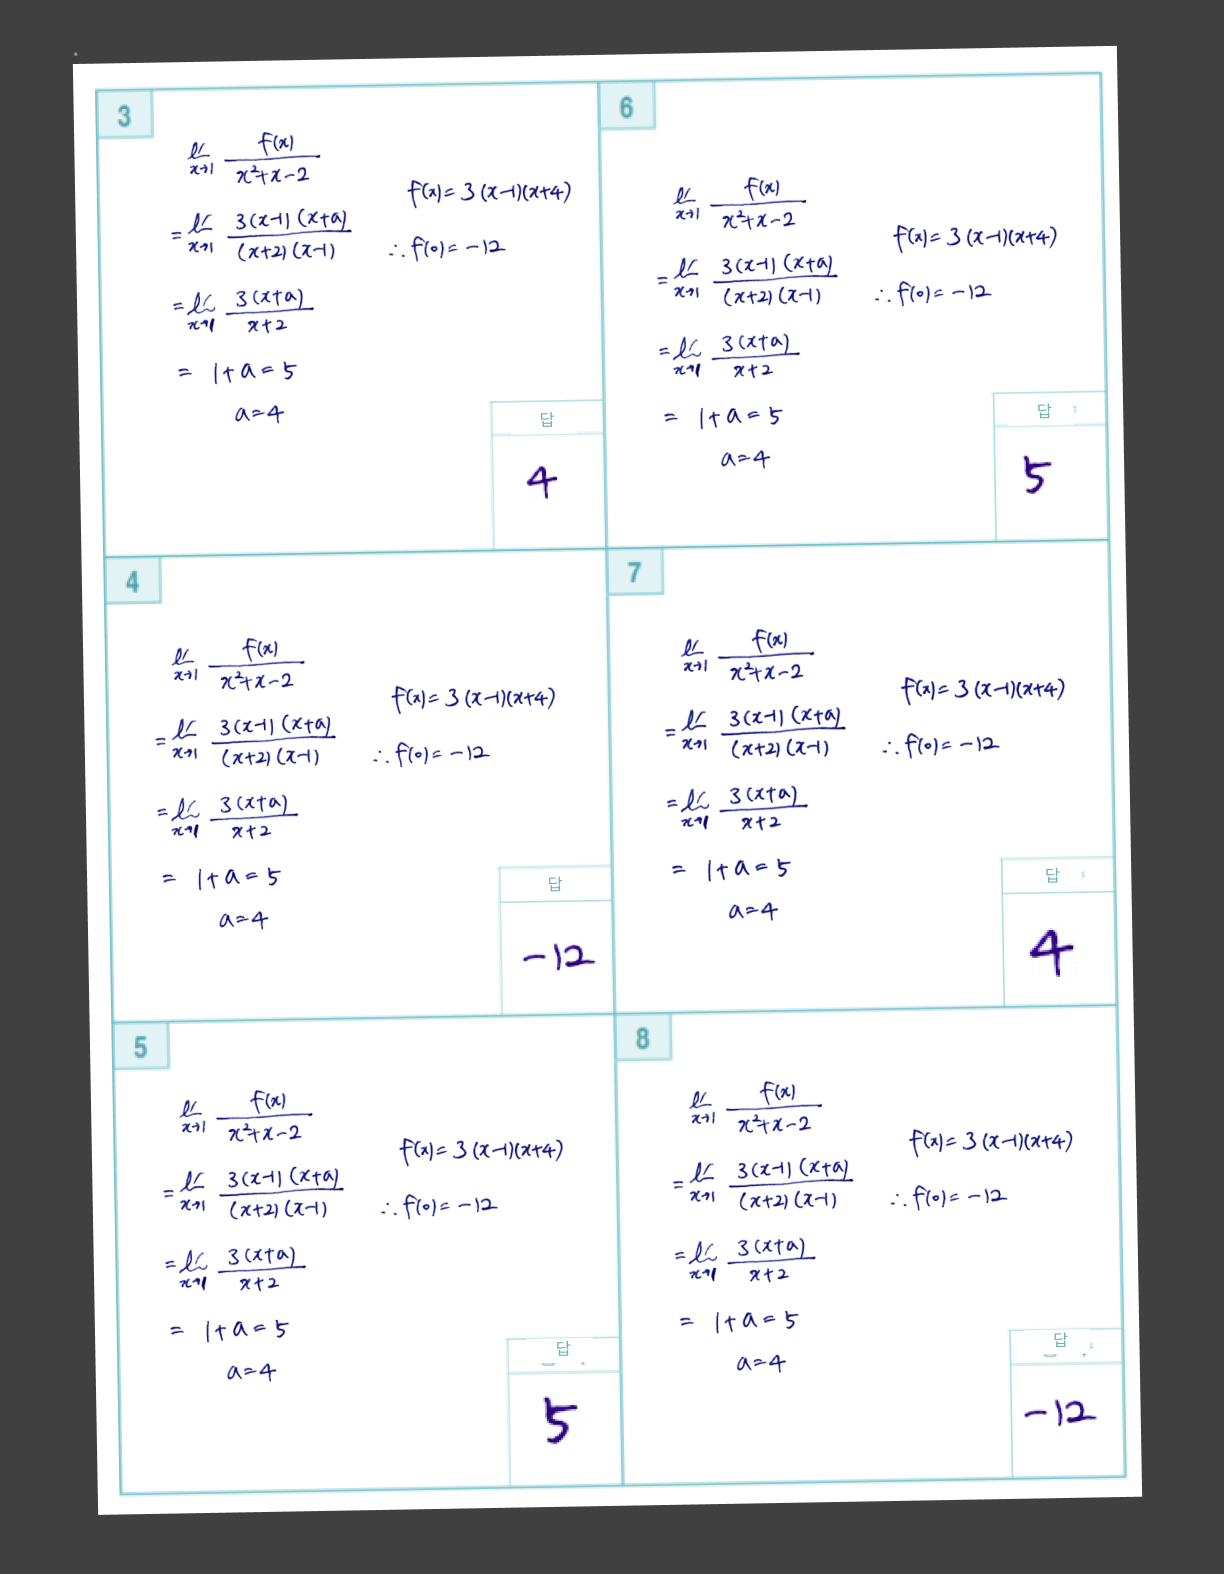 3
lim x→1 f(x) / x²+x-2
= lim x→1 3(x-1)(x+a) / (x+2)(x-1)
= lim x→1 3(x+a) / x+2
= 1+a=5
a=4
f(x)=3(x-1)(x+4)
∴ f(0)=-12
답
4
4
lim x→1 f(x) / x²+x-2
= lim x→1 3(x-1)(x+a) / (x+2)(x-1)
= lim x→1 3(x+a) / x+2
= 1+a=5
a=4
f(x)=3(x-1)(x+4)
∴ f(0)=-12
답
-12
5
lim x→1 f(x) / x²+x-2
= lim x→1 3(x-1)(x+a) / (x+2)(x-1)
= lim x→1 3(x+a) / x+2
= 1+a=5
a=4
f(x)=3(x-1)(x+4)
∴ f(0)=-12
답
5
6
lim x→1 f(x) / x²+x-2
= lim x→1 3(x-1)(x+a) / (x+2)(x-1)
= lim x→1 3(x+a) / x+2
= 1+a=5
a=4
f(x)=3(x-1)(x+4)
∴ f(0)=-12
답
5
7
lim x→1 f(x) / x²+x-2
= lim x→1 3(x-1)(x+a) / (x+2)(x-1)
= lim x→1 3(x+a) / x+2
= 1+a=5
a=4
f(x)=3(x-1)(x+4)
∴ f(0)=-12
답
4
8
lim x→1 f(x) / x²+x-2
= lim x→1 3(x-1)(x+a) / (x+2)(x-1)
= lim x→1 3(x+a) / x+2
= 1+a=5
a=4
f(x)=3(x-1)(x+4)
∴ f(0)=-12
답
-12